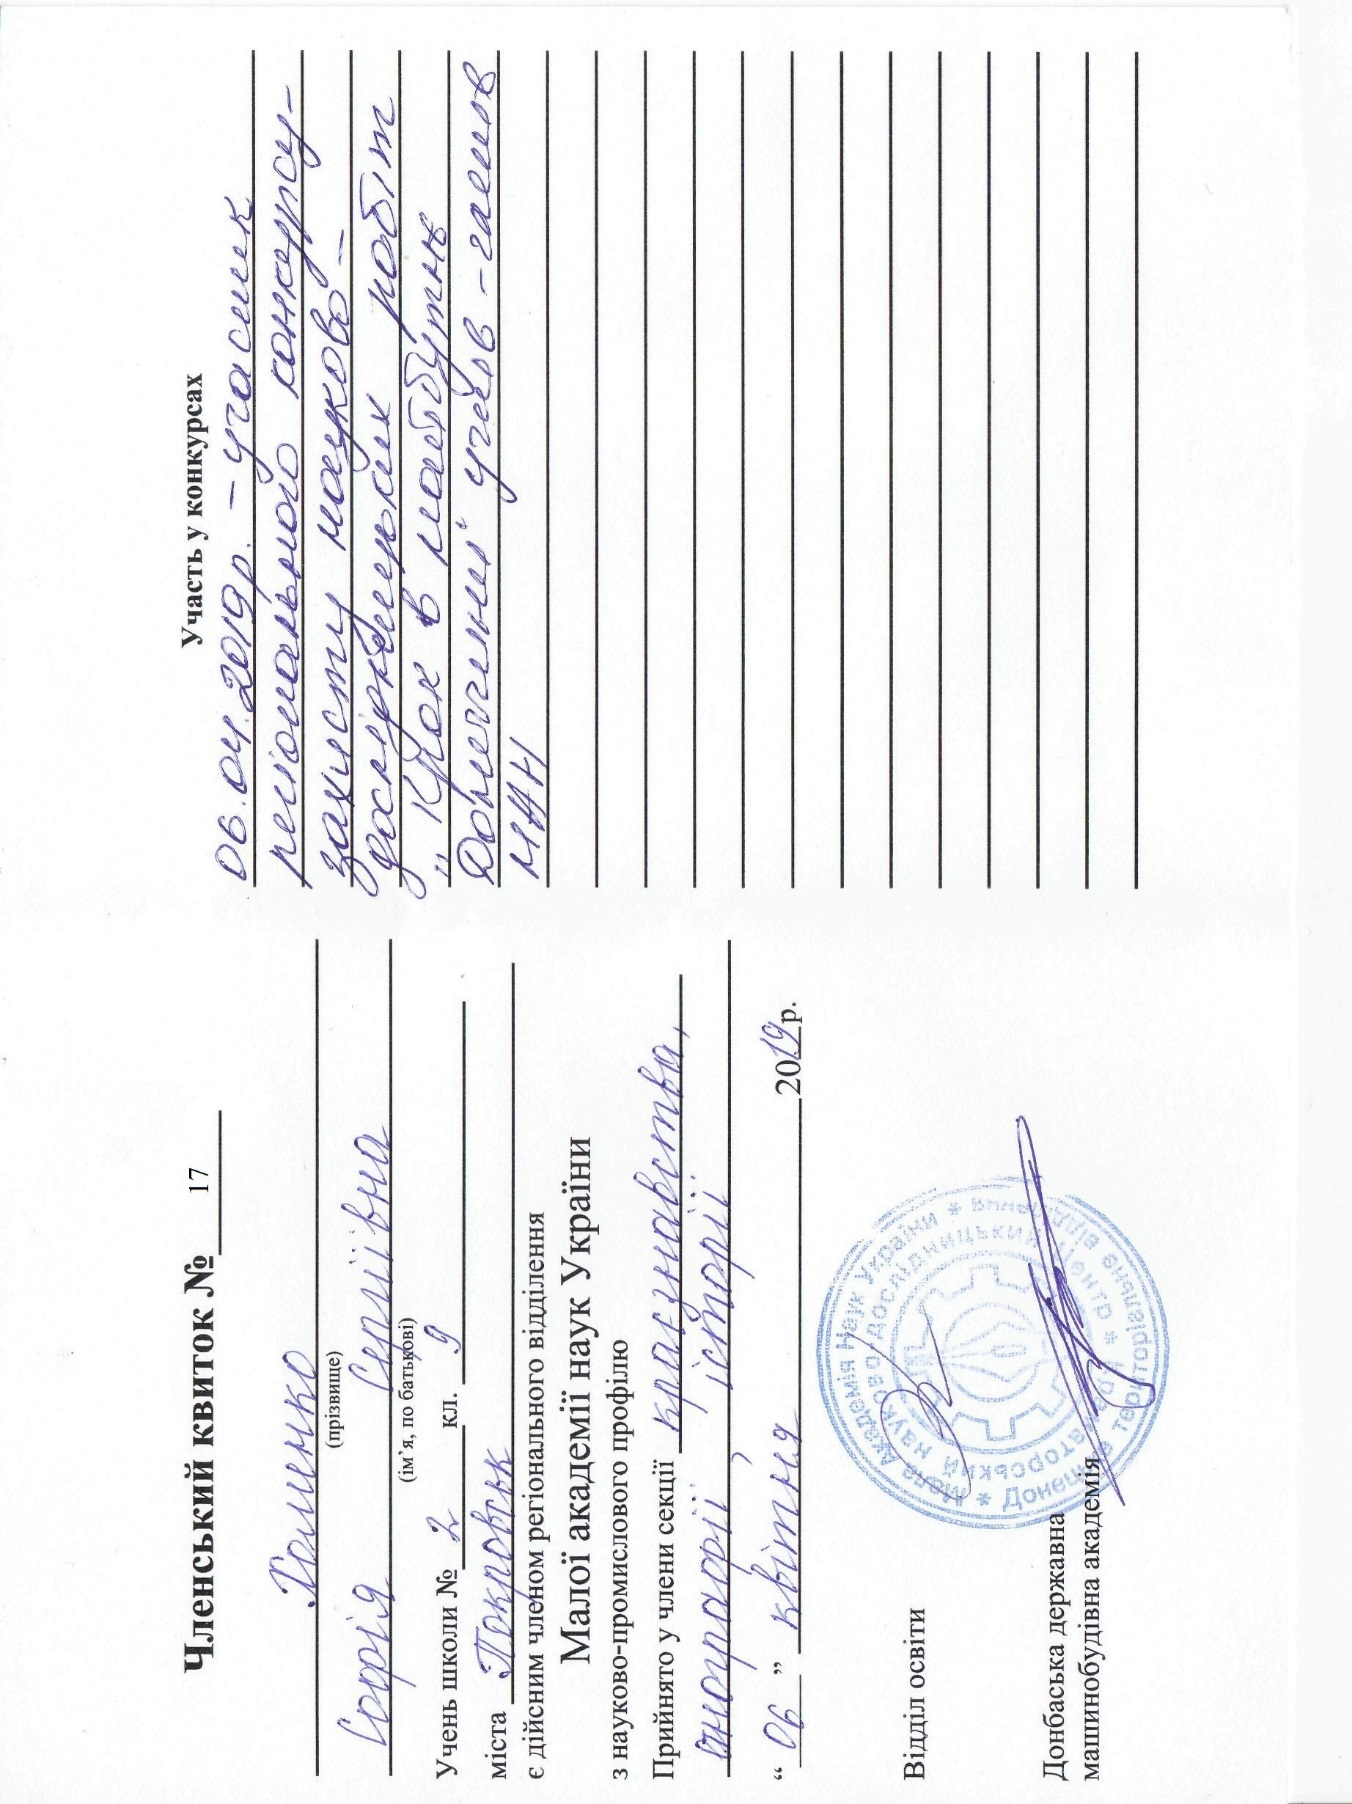 Членський квиток № 17
Хоменко
(прізвище)
Софія Сергіївна
(ім’я, по батькові)
Учень школи № 2 кл. 9
міста Покровськ
є дійсним членом регіонального відділення
Малої академії наук України
з науково-промислового профілю
Прийнято у члени секції краєзнавства,
етнографії, історії
“ 06 ” квітня 2019 р.
Відділ освіти
Донбаська державна
машинобудівна академія
Мала Академія Наук України * Донецьке територіальне відділення *
Участь у конкурсах
06.04.2019р. – учасник
регіонального конкурсу-
захисту науково-
дослідницьких робіт
„ Крок в майбутнє
Донеччини" учнів - членів
МАН